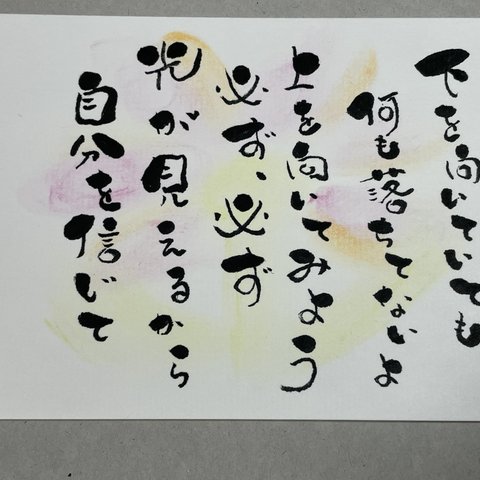 下を向いていても
何も落ちてないよ
上を向いてみよう
必ず、必ず
光が見えるから
自分を信じて